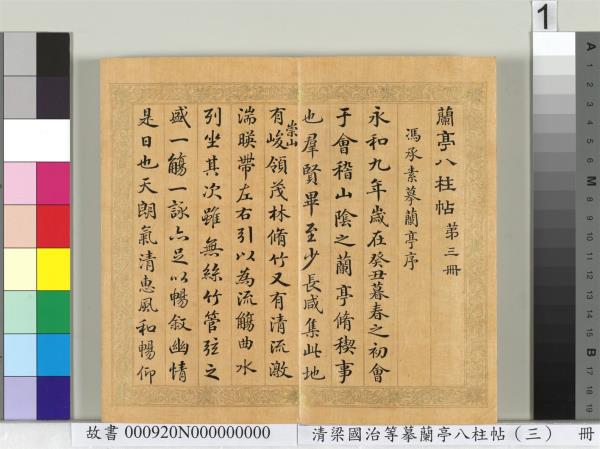 蘭亭八柱帖 第三冊
馮承素摹蘭亭序
永和九年歲在癸丑暮春之初會
于會稽山陰之蘭亭脩稧事
也羣賢畢至少長咸集此地
有崇山峻領茂林脩竹又有清流激
湍暎帶左右引以為流觴曲水
列坐其次雖無絲竹管弦之
盛一觴一詠亦足以暢叙幽情
是日也天朗氣清惠風和暢仰
故書 000920N000000000
清梁國治等摹蘭亭八柱帖（三） 冊
1
A 1 2 3 4 5 6 M 8 9 10 11 12 13 14 15 B 17 18 19